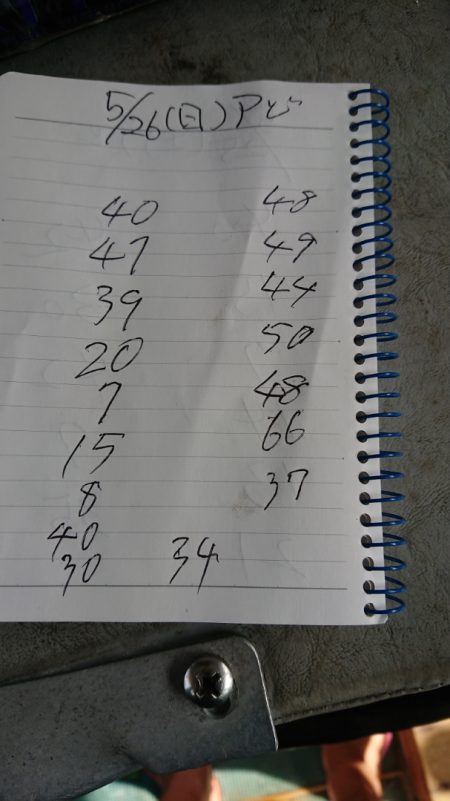 5/26(日) アピ
40 48
47 49
39 44
20 50
7 48
15 66
8 37
40
30 34